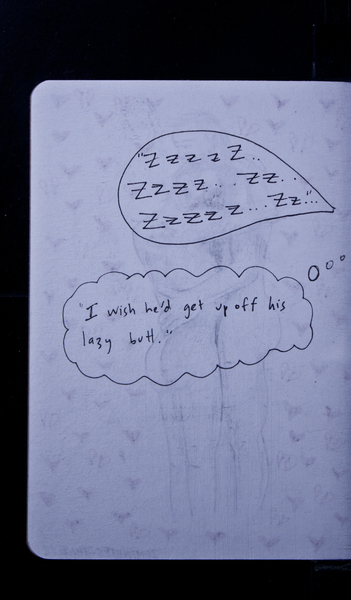 "Zzzzz Z..
Zzzz... zz..
Zzzzz z... Zz..."
"I wish he'd get up off his
lazy butt."